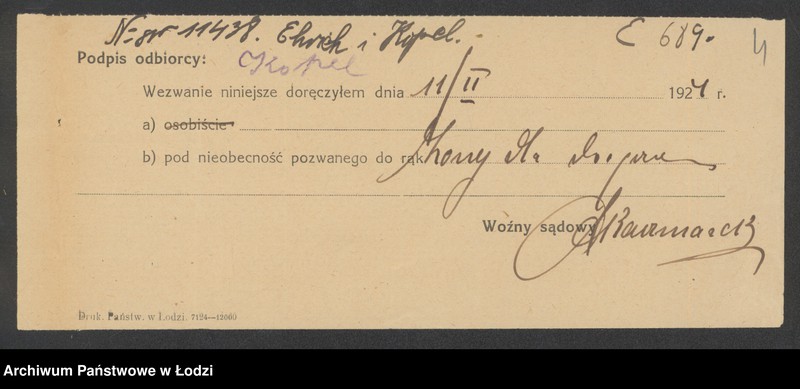 No gr 11438. Ehrlich i Kopel. - C 689.
4
Podpis odbiorcy: Kopel
Wezwanie niniejsze doręczyłem dnia 11/II 1924 r.
a) osobiście
b) pod nieobecność pozwanego do rąk żony dla
Woźny sądowy Kaczmarek
Druk. Państw. w Łodzi. 7124—12000
Archiwum Państwowe w Łodzi